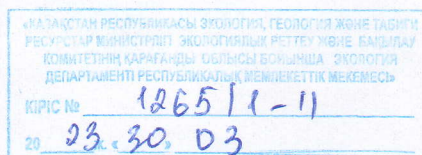 «ҚАЗАҚСТАН РЕСПУБЛИКАСЫ ЭКОЛОГИЯ, ГЕОЛОГИЯ ЖӘНЕ ТАБИҒИ
РЕСУРСТАР МИНИСТРЛІГІ ЭКОЛОГИЯЛЫҚ РЕТТЕУ ЖӘНЕ БАҚЫЛАУ
КОМИТЕТІНІҢ ҚАРАҒАНДЫ ОБЛЫСЫ БОЙЫНША ЭКОЛОГИЯ
ДЕПАРТАМЕНТІ РЕСПУБЛИКАЛЫҚ МЕМЛЕКЕТТІК МЕКЕМЕСІ»
КІРІС № 1265/1-11
20 23 ж. «30» 03